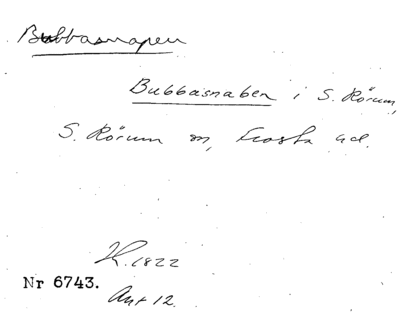 Bubbasnapen
Bubbasnaben i S. Rörum,
S. Rörum sn, Frosta hd.
K. 1822
Nr 6743.
Avt 12.